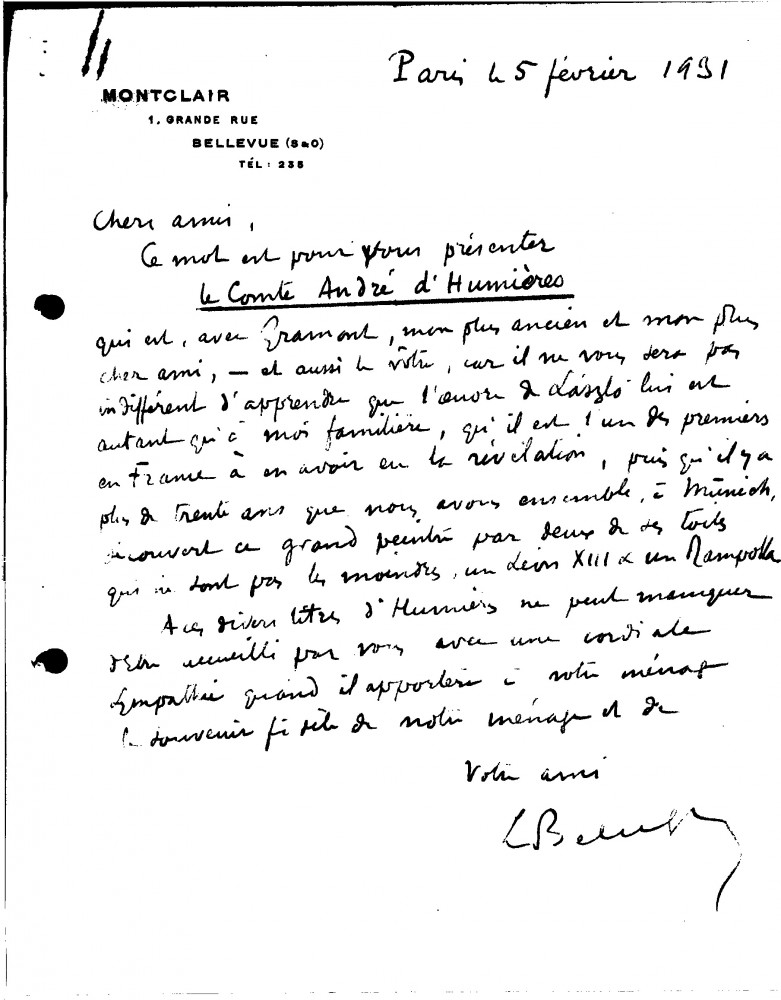 Paris le 5 février 1931
MONTCLAIR
1. GRANDE RUE
BELLEVUE (S&O)
TÉL: 235
Chers amis,
Ce mot est pour vous présenter
le Comte André d'Humières
qui est, avec Gramont, mon plus ancien et mon plus
cher ami, – et aussi le vôtre, car il ne vous sera pas
indifférent d'apprendre que l'œuvre de László lui est
autant qu'à moi familière, qu'il est l'un des premiers
en France à en avoir eu la révélation, puisqu'il y a
plus de trente ans que nous avons ensemble, à Münich,
découvert ce grand peintre par deux de ses toiles
qui ne sont pas les moindres, un Léon XIII & un Rampolla
A ces divers titres d'Humières ne peut manquer
d'être accueilli par vous avec une cordiale
sympathie quand il apportera à votre ménage
le souvenir fidèle de notre ménage et de
Votre ami